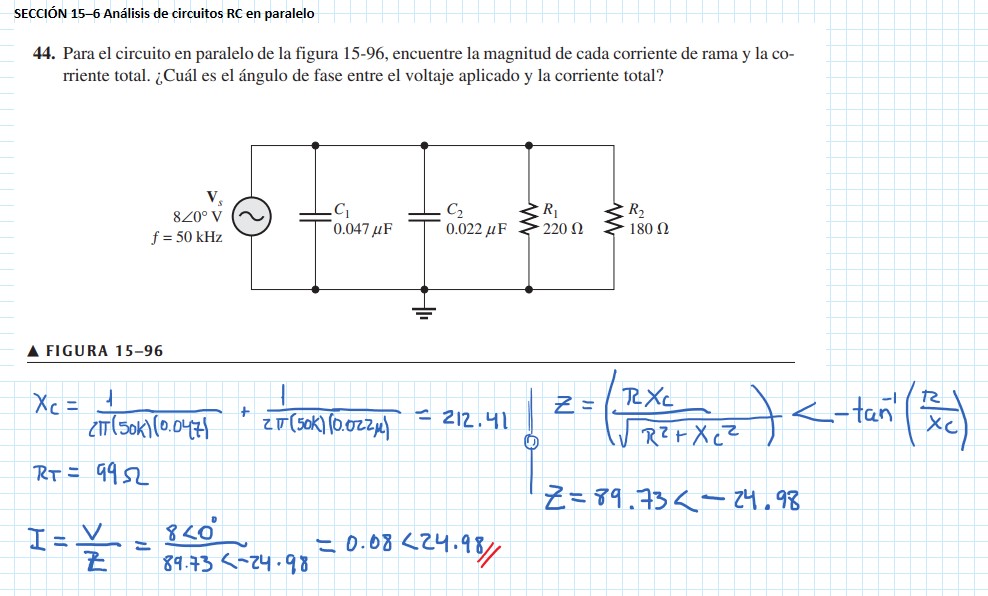 SECCIÓN 15–6 Análisis de circuitos RC en paralelo
44. Para el circuito en paralelo de la figura 15-96, encuentre la magnitud de cada corriente de rama y la co-
rriente total. ¿Cuál es el ángulo de fase entre el voltaje aplicado y la corriente total?
Vs
8∠0° V
f = 50 kHz
C1
0.047 μF
C2
0.022 μF
R1
220 Ω
R2
180 Ω
▲ FIGURA 15–96
Xc = 1/(2π(50K)(0.047)) + 1/(2π(50K)(0.022μ)) = 212.41
Z = (RXc/√(R²+Xc²)) < -tan⁻¹(R/Xc)
RT = 99Ω
Z = 89.73 < -24.98
I = V/Z = 8<0°/(89.73<-24.98) = 0.08 <24.98//